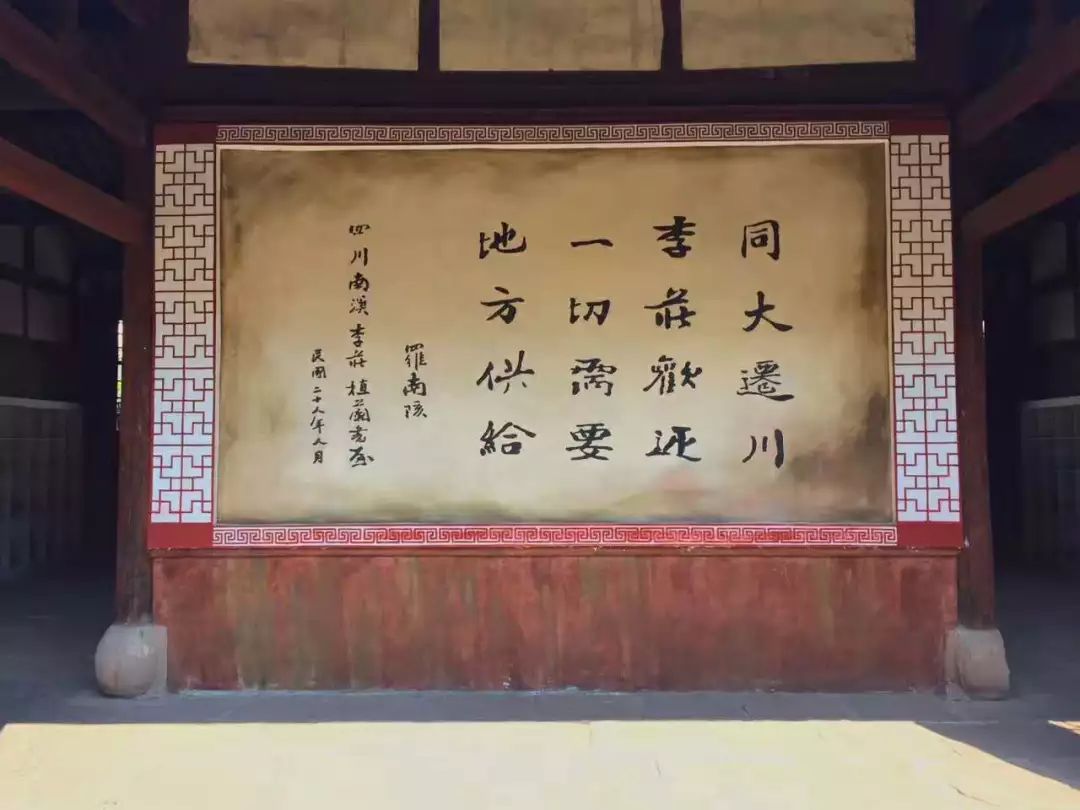 同大遷川
李莊歡迎
一切需要
地方供給
羅南陔
四川南溪李莊植蘭書屋
民國二十八年九月